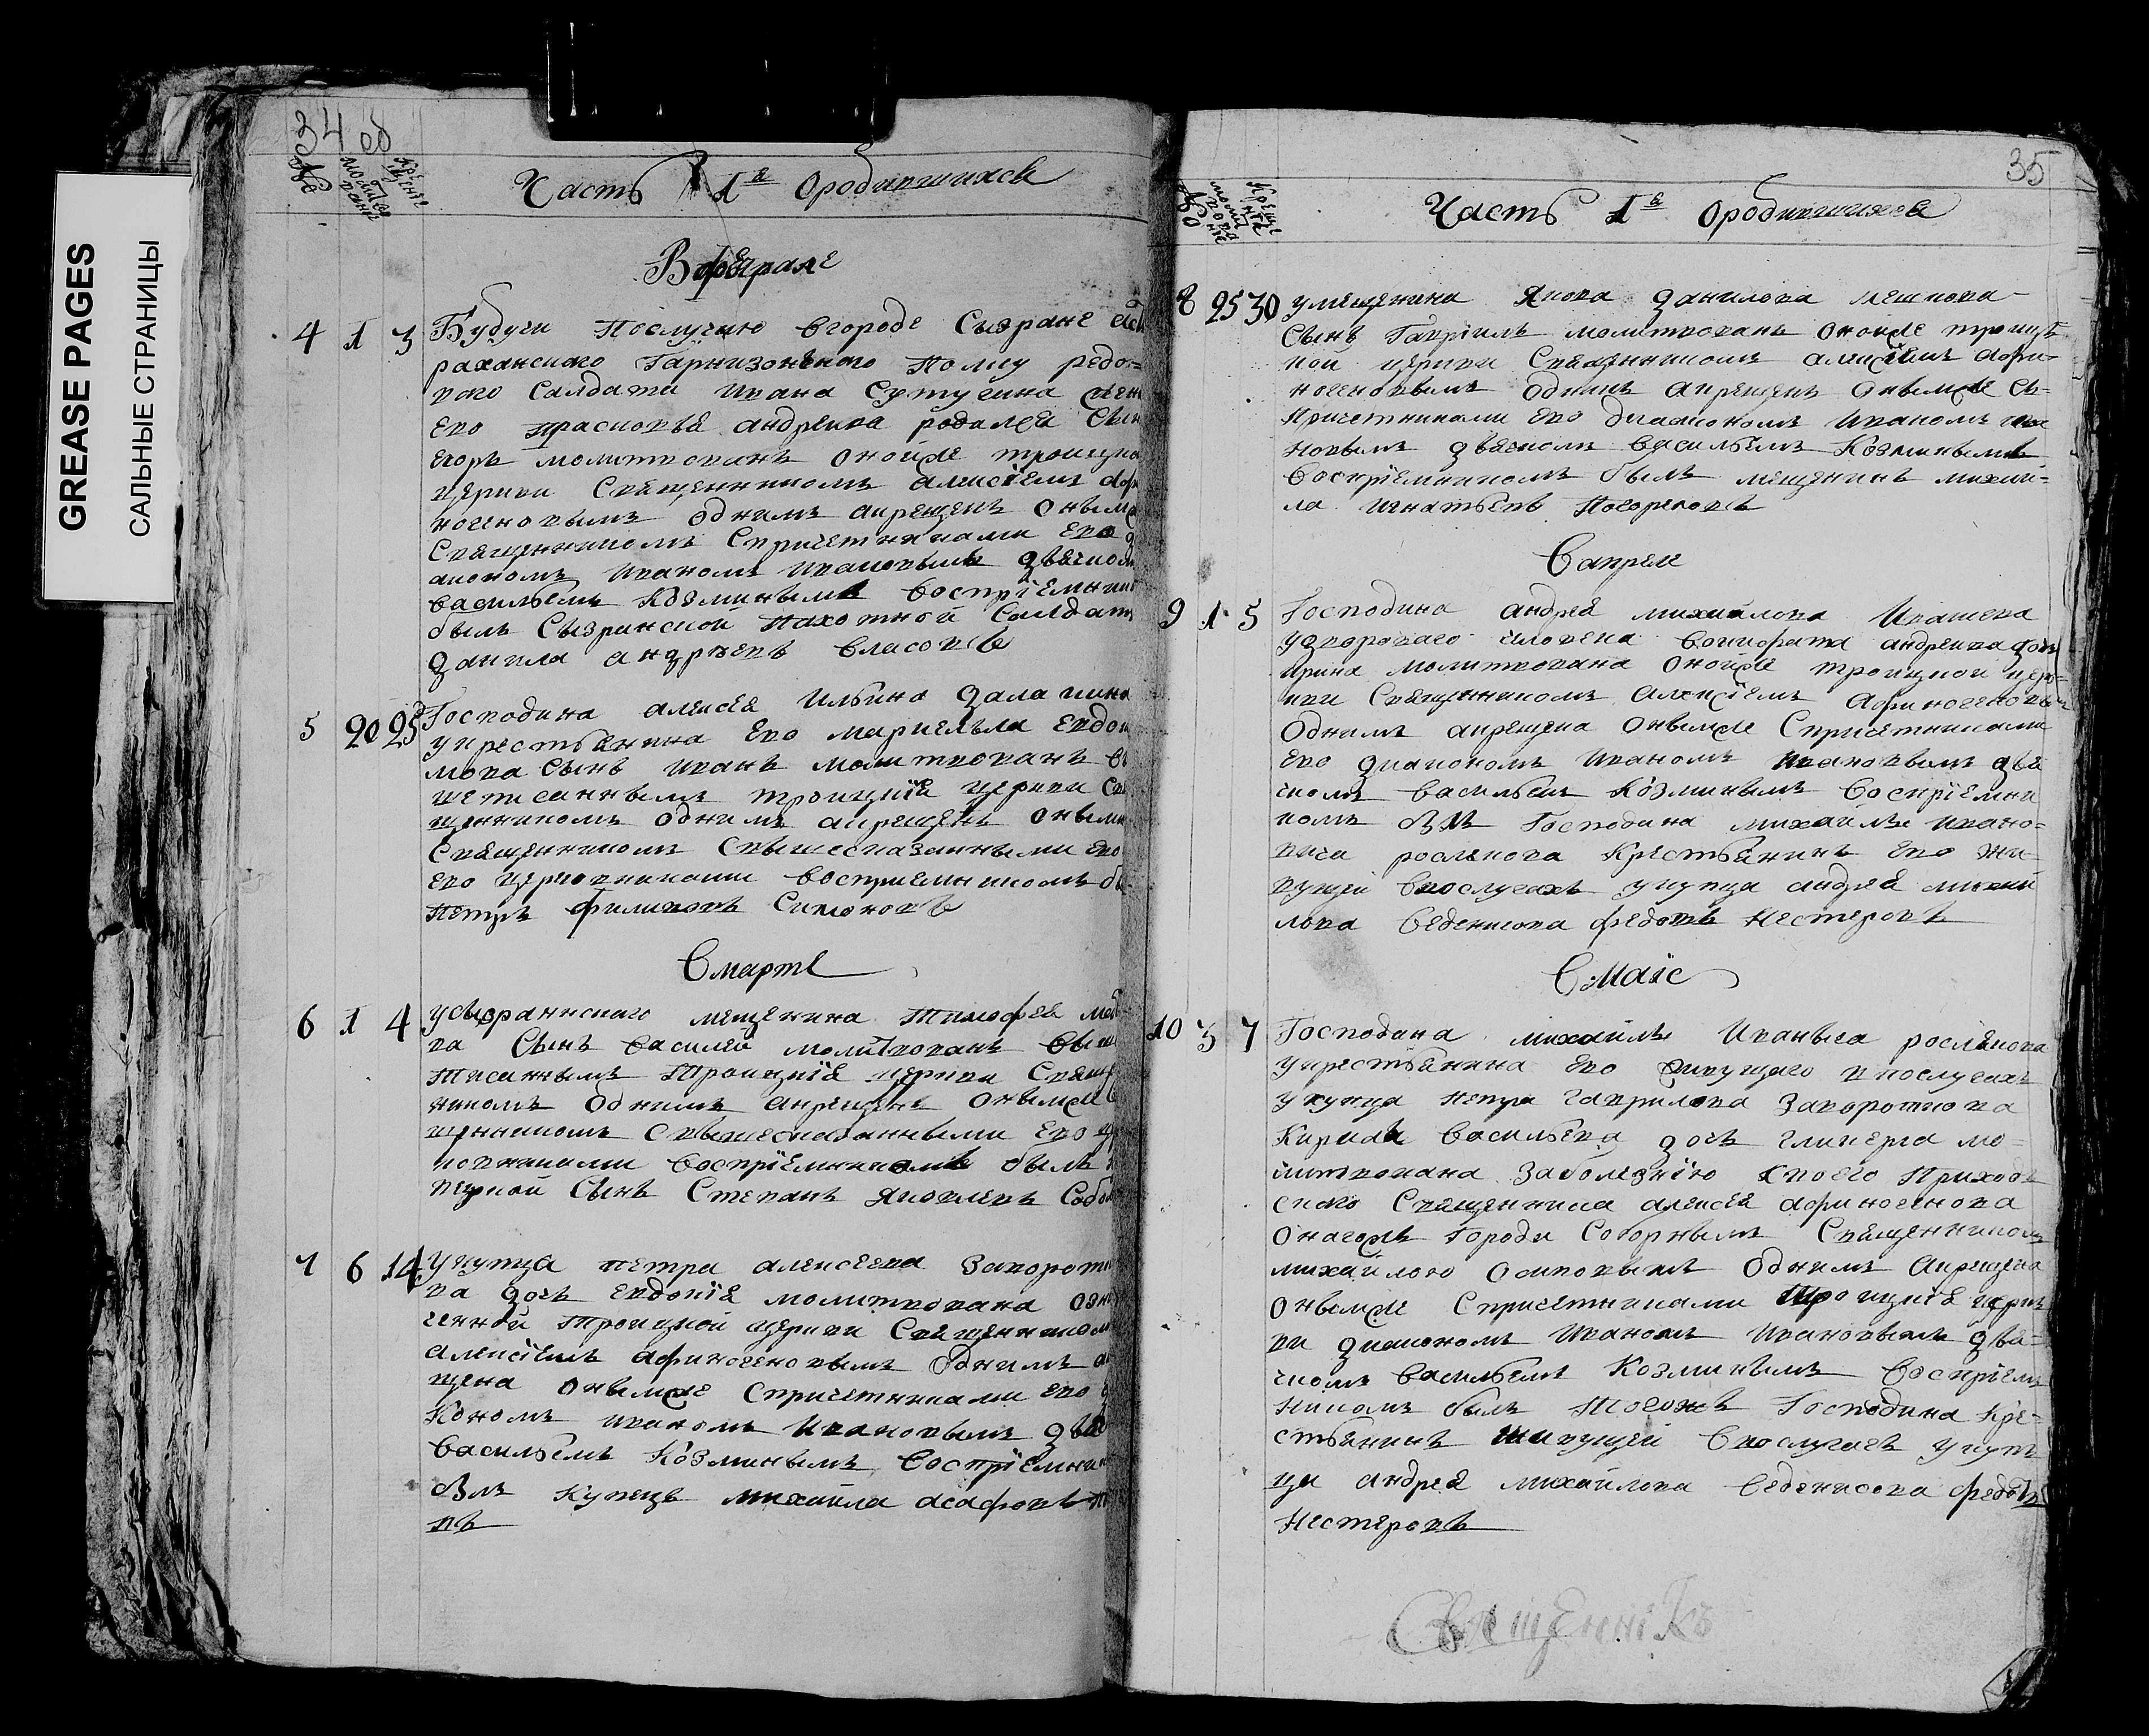 GREASE PAGES
САЛЬНЫЕ СТРАНИЦЫ
34 об
№
Часть 1я ородившихся
Вфеврале
4 1 3 Будучи Послучаю вгороде Сызране аст
раханского Гарнизоннаго Полку редо-
ваго Салдата Ивана жена
Его прасковья андреева родился Сын
Егоръ молитвованъ онойже троицко
церкви Священникомъ алексіемъ афи
ногеновымъ однимъ акрещенъ оным
Священникомъ Спричетниками Его д
акономъ Иваномъ Ивановымъ дьячком
василъемъ Козминымъ воспріемник
былъ Сызранской пахотной Салдатъ
данила андреевъ власовъ
5 20 25 Господина алексея Ильина
укрестьянина Его Евдок
мова Сынъ иванъ молитвованъ вы
шеписаннымъ троицкія церкви Свя
щенникомъ однимъ акрещенъ онымъ
Священникомъ Свышесказанными Его
Его церковниками восприемникомъ бы
петръ филиповъ Симоновъ
Смарте
6 1 4 усызранского мещенина Тимофея
ва Сынъ василей молитвованъ выше
писаннымъ Троицкія церкви Священ
никомъ однимъ акрещенъ онымже С
щенникомъ Свышесказанными Его цер
ковниками воспріемникомъ былъ
Сынъ Степанъ яковлевъ
7 6 14 укупца петра алексеева Заворотко
ва дочь Евдокія молитвована озна
ченной Троицкой церкви Священником
алексіемъ афиногеновымъ однимъ ак
щена онымже Спричетниками Его д
кономъ иваномъ ивановымъ дьяч
василъемъ Козминымъ воспріемник
бЛъ купецъ михаила асафовъ
въ
35
№
Часть 1я ородившихся
8 25 30 умещенина якова данилова мешкова
Сынъ Гавріилъ молитвованъ онойже троиц-
кой церкви Священникомъ алексіемъ афи-
ногеновымъ однимъ акрещенъ онымже Съ
причетниками Его диакономъ иваномъ ива
новымъ дьячкомъ василъемъ Козминымъ
воспріемникомъ былъ мещенинъ михай-
ла игнатьевъ Погореловъ
Вапреле
9 1 5 Господина андрея михайлова Ивашева
удворового человека вонифата андреева дочь
ирина молитвована онойже троицкой цер-
кви Священникомъ алексіемъ афиногеновым
Однимъ акрещена онымже Спричетниками
Его диакономъ иваномъ ивановымъ дья
чкомъ василъемъ Козминымъ воспріемни
комъ бЛъ Господина михаилы ивано-
вича рослякова Крестьянинъ Его жи-
вущей вослугахъ укупца андрея михай
лова веденисова федотъ Нестеровъ
Смаіе
10 3 7 Господина михаилы Иваныча рослякова
укрестьянина Его живущаго вослугахъ
укупца петра Гаврилова Заворотково
Кирила васильева дочь гликерія мо-
литвована заболезнію своего приход-
ского Священника алексея афиногенова
онагожъ города Соборнымъ Священником
михайлою осиповымъ однимъ акрещена
онымже Спричетниками Троицкія церк
ви диакономъ иваномъ ивановымъ дья-
чкомъ василъемъ Козминымъ воспріем
никомъ былъ тогожъ Господина Кре-
стьянинъ живущей вослугахъ укуп
ца андрея михайлова веденисова федотъ
Нестеровъ
Священникъ